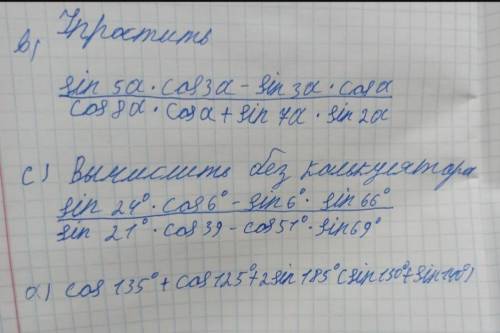 b) Упростить
sin 5α · cos3α - sin 3α · cosα
cos8α · cosα + sin 7α · sin 2α
c) Вычислить без калькулятора
sin 24° · cos6° - sin6° · sin 66°
sin 21° · cos 39 - cos51° · sin69°
d) cos 135° + cos 125° + 2sin 185° (sin130° + sin140°)